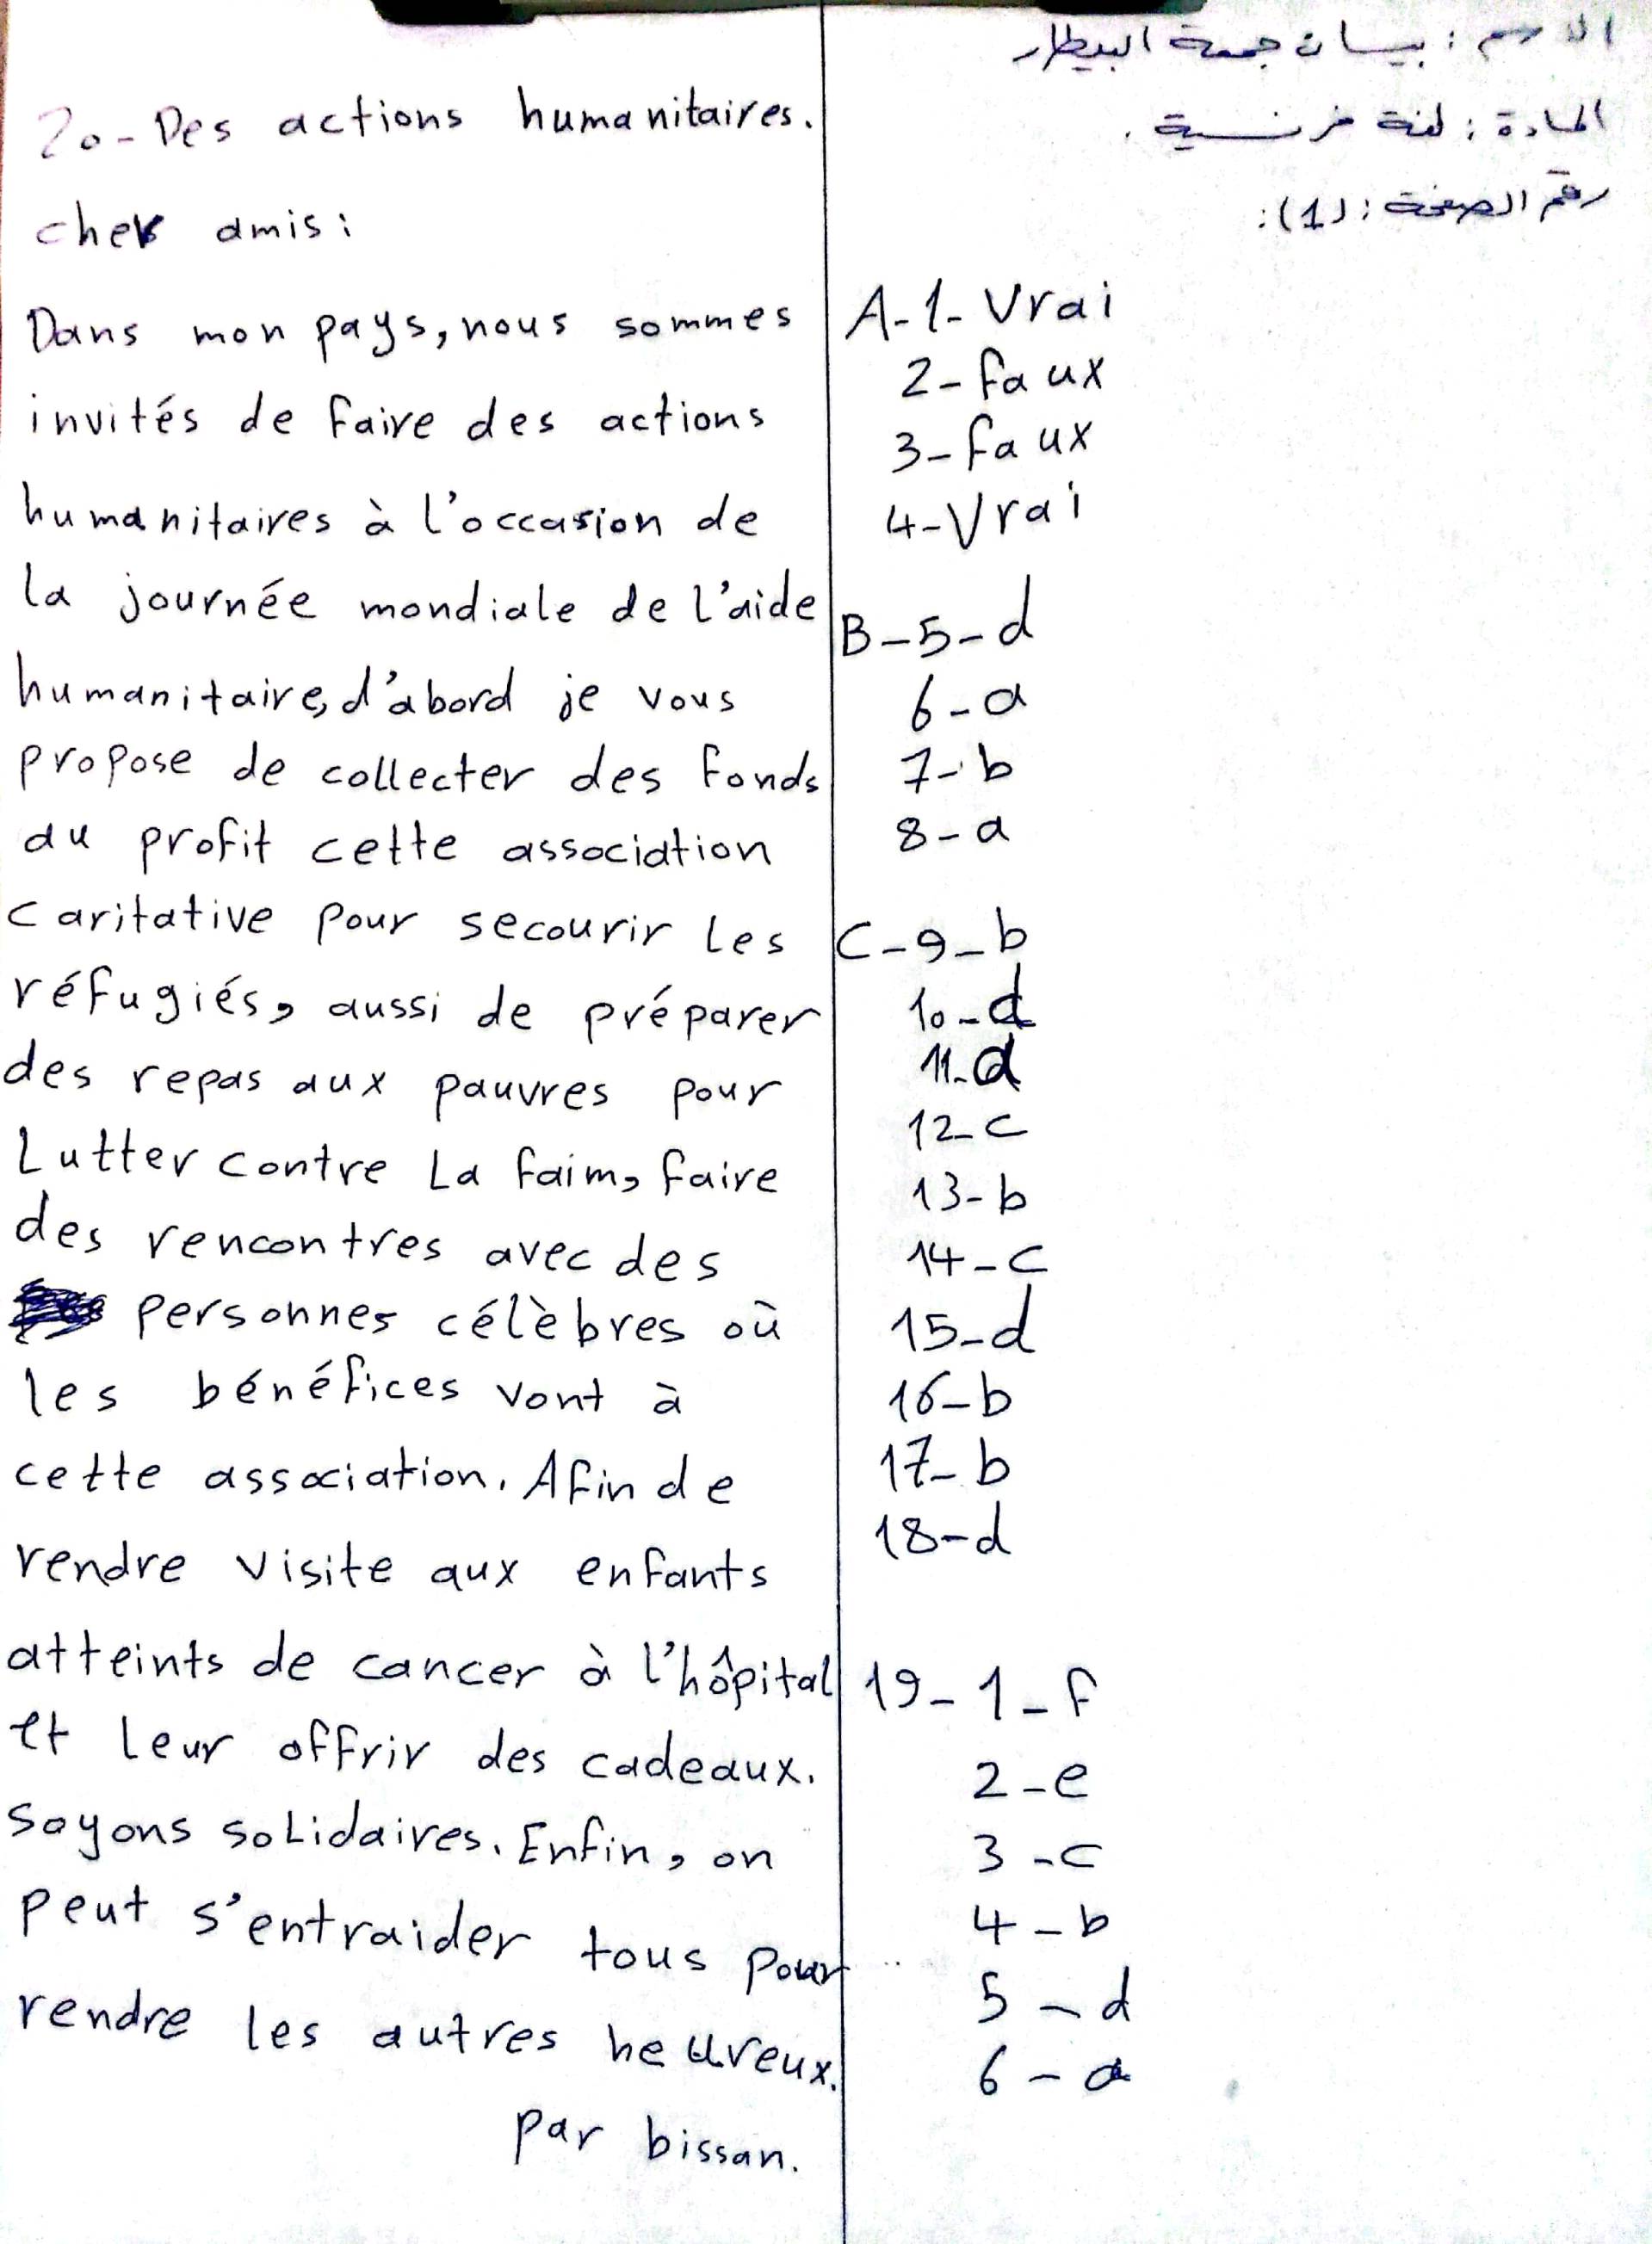 الاسم : بيسان جمعة البيطار
المادة : لغة فرنسية .
رقم الصفحة : (1) :
A-1-Vrai
2-faux
3-faux
4-Vrai
B-5-d
6-a
7-b
8-a
C-9-b
10-d
11-d
12-c
13-b
14-c
15-d
16-b
17-b
18-d
19-1-f
2-e
3-c
4-b
5-d
6-a
20-Des actions humanitaires.
cher amis:
Dans mon pays, nous sommes
invités de faire des actions
humanitaires à l'occasion de
la journée mondiale de l'aide
humanitaire, d'abord je vous
propose de collecter des fonds
au profit cette association
caritative pour secourir les
réfugiés, aussi de préparer
des repas aux pauvres pour
Lutter contre La faim, faire
des rencontres avec des
personnes célèbres où
les bénéfices vont à
cette association. Afin de
rendre visite aux enfants
atteints de cancer à l'hôpital
et leur offrir des cadeaux.
soyons solidaires. Enfin, on
peut s'entraider tous pour
rendre les autres heureux.
par bissan.